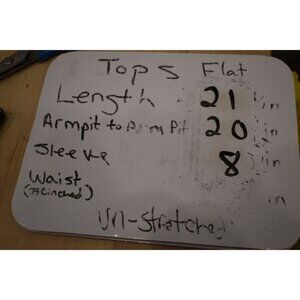 Tops Flat
Length 21 in
Armpit to Arm Pit 20 in
Sleeve 8 in
Waist in
(If Cinched)
Un-Stretched